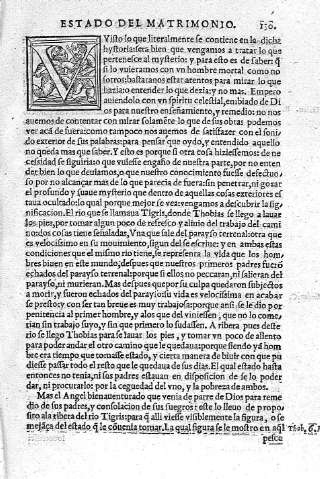 ESTADO DEL MATRIMONIO. 136.
VIsto lo que literalmente se contiene en la dicha
hystoria sera bien que vengamos a tratar lo que
pertenesce al mysterio: y para esto es de saber q̃
si lo vuieramos con vn hombre mortal como no
sotros: bastaranos entonces para mirar lo que
haria: o entender lo que dezia: y no mas. Empero
auiendolo con vn spiritu celestial, embiado de Di
os para nuestro enseñamiento, y remedio: no nos
auemos de contentar con mirar solamẽte lo que de sus obras podemos
ver aca de fuera: como tampoco nos auemos de satisfazer con el soni
do exterior de sus palabras: para pensar que oydo, y entendido aquello
no queda mas que saber. Y esto es porque si otra cosa hiziessemos: de ne
cessidad se siguiria o que vuiesse engaño de nuestra parte, por no enten
der bien lo que deuiamos, o que nuestro conocimiento fuesse defectuo
so por no alcançar mas de lo que parecia de fuera: sin penetrar, ni gozar
el profundo y suaue mysterio que dentro de aquellas cosas exteriores es
taua ocultado: lo qual porque mejor se vea: vengamos a descubrir la sig
nificacion. El rio que se llamaua Tigris, donde Thobias se llego a lauar
los pies, por tomar algun poco de refresco y aliuio del trabajo del cami
no dos cosas tiene señaladas, Vna que sale del parayso terrenal: otra que
es velocissimo en su mouimiento, sigun del se escriue: y en ambas estas
condiciones que el mismo rio tiene, se representa la vida que los hom
bres biuen en este mundo, despues que nuestros primeros padres fueron
echados del parayso terrenal: porque si ellos no peccaran, ni salieran del
parayso, ni murieran. Mas despues que por su culpa quedaron subjectos
a morir, y fueron echados del parayso: su vida es velocissima en acabar
se presto: y con ser tan breue es muy trabajosa: porque ansi se le dio por
penitencia al primer hombre, y a los que del viniessen, que no lo come
rian sin trabajo suyo, y sin que primero lo sudassen. A ribera pues deste
rio se llego Thobias para se lauar los pies, y tomar vn poco de aliento
para poder andar el otro camino que le quedaua: porque siendo ya hom
bre era tiempo que tomasse estado, y cierta manera de biuir con que pu
diesse passar todo el resto que le quedaua de sus dias. El qual estado hasta
entonces no tenia, ni sus padres estauan en disposicion de se lo poder
dar, ni procurarlo: por la ceguedad del vno, y la pobreza de ambos.
Mas el Angel bienauenturado que venia de parte de Dios para reme
dio de sus padres, y consolacion de sus suegros: este lo lleuo de propo
sito a la ribera del rio Tigris: para q̃ alli viesse visiblemente la figura, o se
mejãça del estado q̃ le cõuenia tomar. La qual figura se le mostro en aq̃l Thob. 6.
pesco